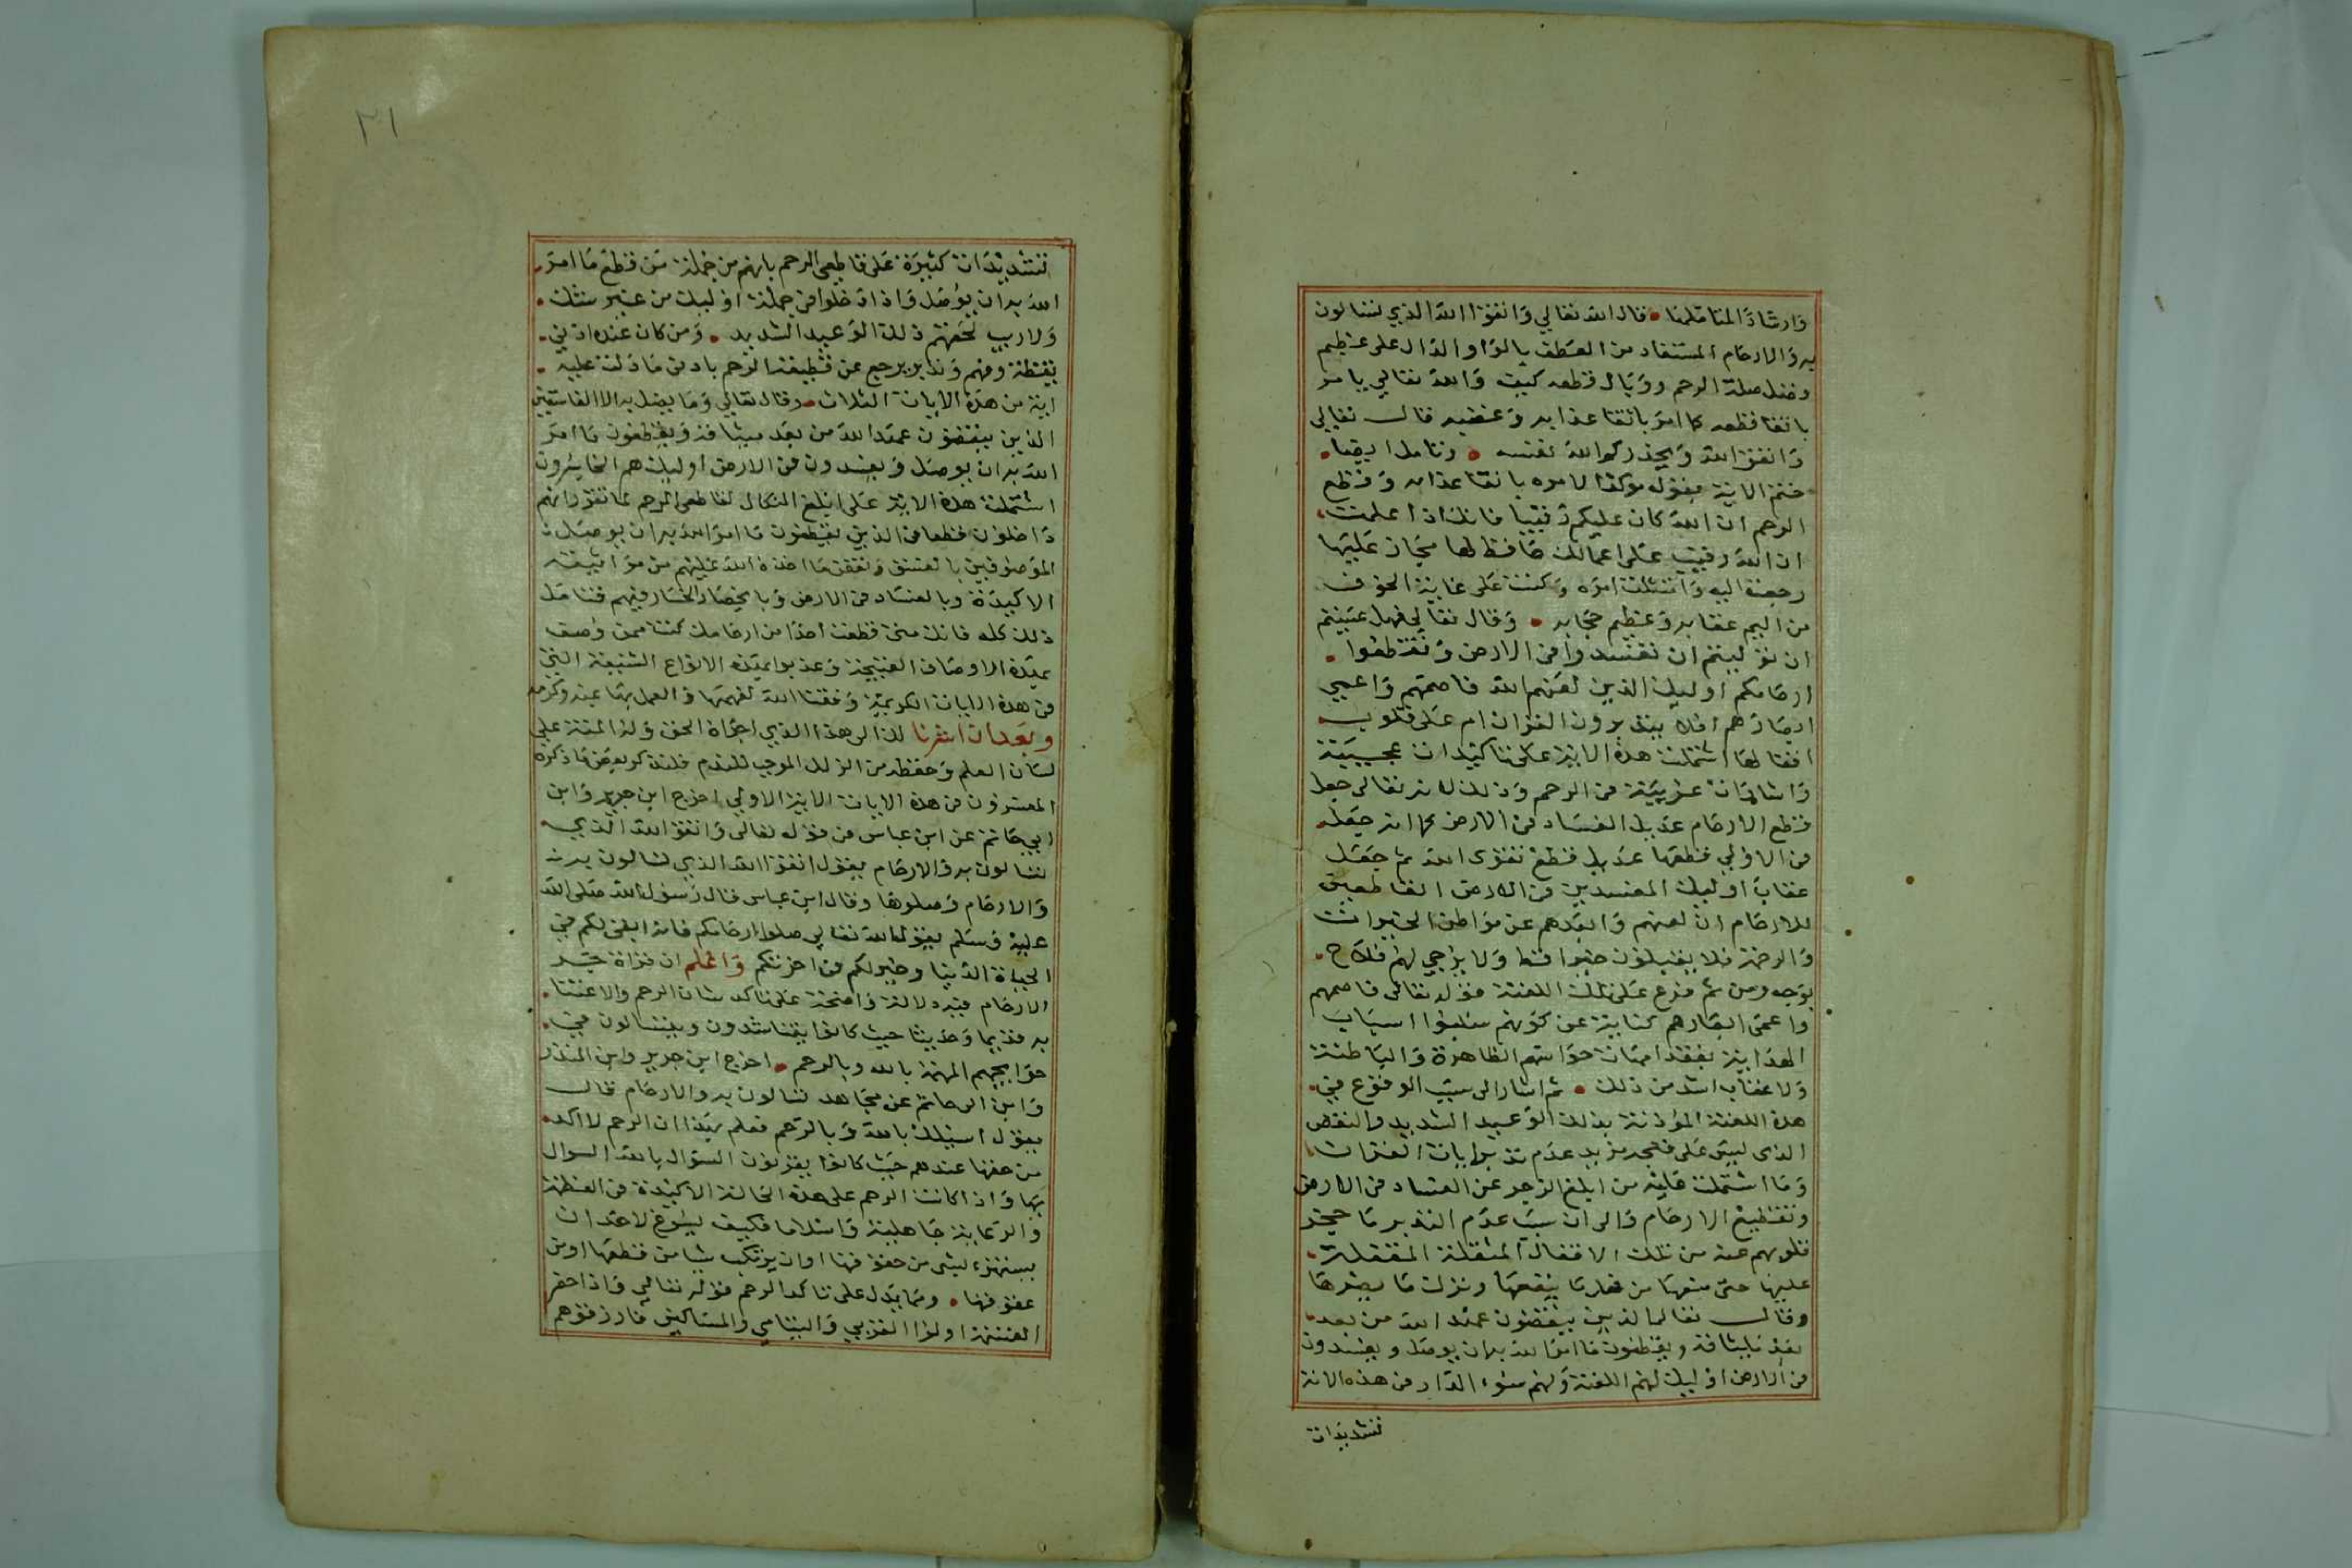 وارشادا لمتاملها قال الله تعالي واتقوا الله الذي تسالون
به والارحام المستفاد من العطف بالواو الدال على عظيم
وفضل صلة الرحم ووبال قطعه كيف والله تعالي يامر
باتقا قطعه كما امر باتقا عذابه وغضبه قال تعالي
واتقوا الله ويحذركم الله نفسه وتامل ايضا
ختم الاية بقوله موكدا لامره باتقا عذابه وقطع
الرحم ان الله كان عليكم رقيبا فانك اذا علمت
ان الله رقيب على اعمالك حافظ لها مجاز عليها
رجعت اليه وامتثلت امره وكنت على غاية الخوف
من اليم عقابه وعظيم حجابه وقال تعالي فهل عسيتم
ان توليتم ان تفسدوا في الارض وتقطعوا
ارحامكم اوليك الذين لعنهم الله فاصمهم واعمي
ابصارهم افلا يتدبرون القران ام على قلوب
اقفالها اشتملت هذه الاية على تاكيدات عجيبة
واشارات غريبة في الرحم وذلك لانه تعالى جعل
قطع الارحام عديل الفساد في الارض كما انه جعل
في الاولي قطعها عديل قطع تقوى الله ثم جعل
عقاب اوليك المفسدين في الارض القاطعين
للارحام ان لعنهم وابعدهم عن مواطن الخيرات
والرحمة فلا يقبلون خيرا قط ولا يرجي لهم فلاح
بوجه ومن ثم فرع على تلك اللعنة قوله تعالى فاصمهم
واعمى ابصارهم كناية عن كونهم سلبوا اسباب
الهداية بفقدانهم حواسهم الظاهرة والباطنة
ولا عقاب اشد من ذلك ثم اشار الى سبب الوقوع في
هذه اللعنة المؤذنة بذلك الوعيد الشديد والنقص
الذى ليس على قبحه مزيد عدم تدبر ايات القران
وما اشتملت عليه من ابلغ الزجر عن الفساد في الارض
وتقطيع الارحام والى ان سبب عدم التدبر ما حجر
قلوبهم عنه من تلك الاقفال المثقلة المقفلة
عليها حتى منعها من فعل ما ينفعها وترك ما يضرها
وقال تعالى الذين ينقضون عهد الله من بعد
بعد ميثاقه ويقطعون ما امر الله به ان يوصل ويفسدون
في الارض اوليك لهم اللعنة ولهم سوء الدار في هذه الاية
تشديدات
٣١
تشديدات كثيرة على قاطعي الرحم بانهم من جملة من قطع ما امر
الله به ان يوصل واذا دخلوا في جملة اوليك من غير شك
ولا ريب لحقهم ذلك الوعيد الشديد ومن كان عنده ادني
يقظة وفهم وتدبر يرجع عن قطيعة الرحم بادنى ما دلت عليه
اية من هذه الايات الثلاث وقال تعالي وما يضل به الا الفاسقين
الذين ينقضون عهد الله من بعد ميثاقه ويقطعون ما امر
الله به ان يوصل ويفسدون في الارض اوليك هم الخاسرون
اشتملت هذه الاية على ابلغ النكال لقاطعي الرحم لما تقرر انهم
داخلون قطعا في الذين يقطعون ما امر الله به ان يوصل
الموصوفين بالفسق ونقض ما اخذه الله عليهم من مواثيقه
الاكيدة وبالفساد في الارض وبانحصار الخسار فيهم فتامل
ذلك كله فانك متى قطعت احدا من ارحامك كنت ممن وصف
بهذه الاوصاف القبيحة وعذبوا بهذه الانواع الشنيعة التي
في هذه الايات الكريمة وفقنا الله لفهمها والعمل بها بمنه وكرمه
وبعد ان اشرنا لك الى هذا الذي اجراه الحق وله المنة على
لسان العلم وحفظه من الزلل الموجب للندم فلنذكر بعض ما ذكره
المفسرون في هذه الايات الاية الاولي اخرج ابن جرير وابن
ابي حاتم عن ابن عباس في قوله تعالى واتقوا الله الذي
تسالون به والارحام يقول اتقوا الله الذي تسالون به
والارحام وصلوها وقال ابن عباس قال رسول الله صلى الله
عليه وسلم يقول الله تعالى صلوا ارحامكم فانه ابقى لكم في
الحياة الدنيا وخير لكم في اخرتكم واعلم ان قراة جر
الارحام فيه دلالة واضحة على تاكد شان الرحم والاعتنا
به قديما وحديثا حيث كانوا يتناشدون ويتسالون في
حوايجهم المهمة بالله وبالرحم اخرج ابن جرير وابن المنذر
وابن ابي حاتم عن مجاهد تسالون به والارحام قال
يقول اسيلك بالله وبالرحم فعلم بهذا ان الرحم لا اكد
من حقها عندهم حيث كانوا يقرنون السؤال بالله السوال
بها واذا كانت الرحم على هذه الحالة الاكيدة في العظمة
والرعاية جاهلية واسلاما فكيف يسوغ لاحد ان
يستهزء بشي من حقوقها او ان يرتكب شيا من قطعها او من
عقوقها ومما يدل على تاكد الرحم قوله تعالى واذا حضر
القسمة اولوا القربي واليتامي والمساكين فارزقوهم